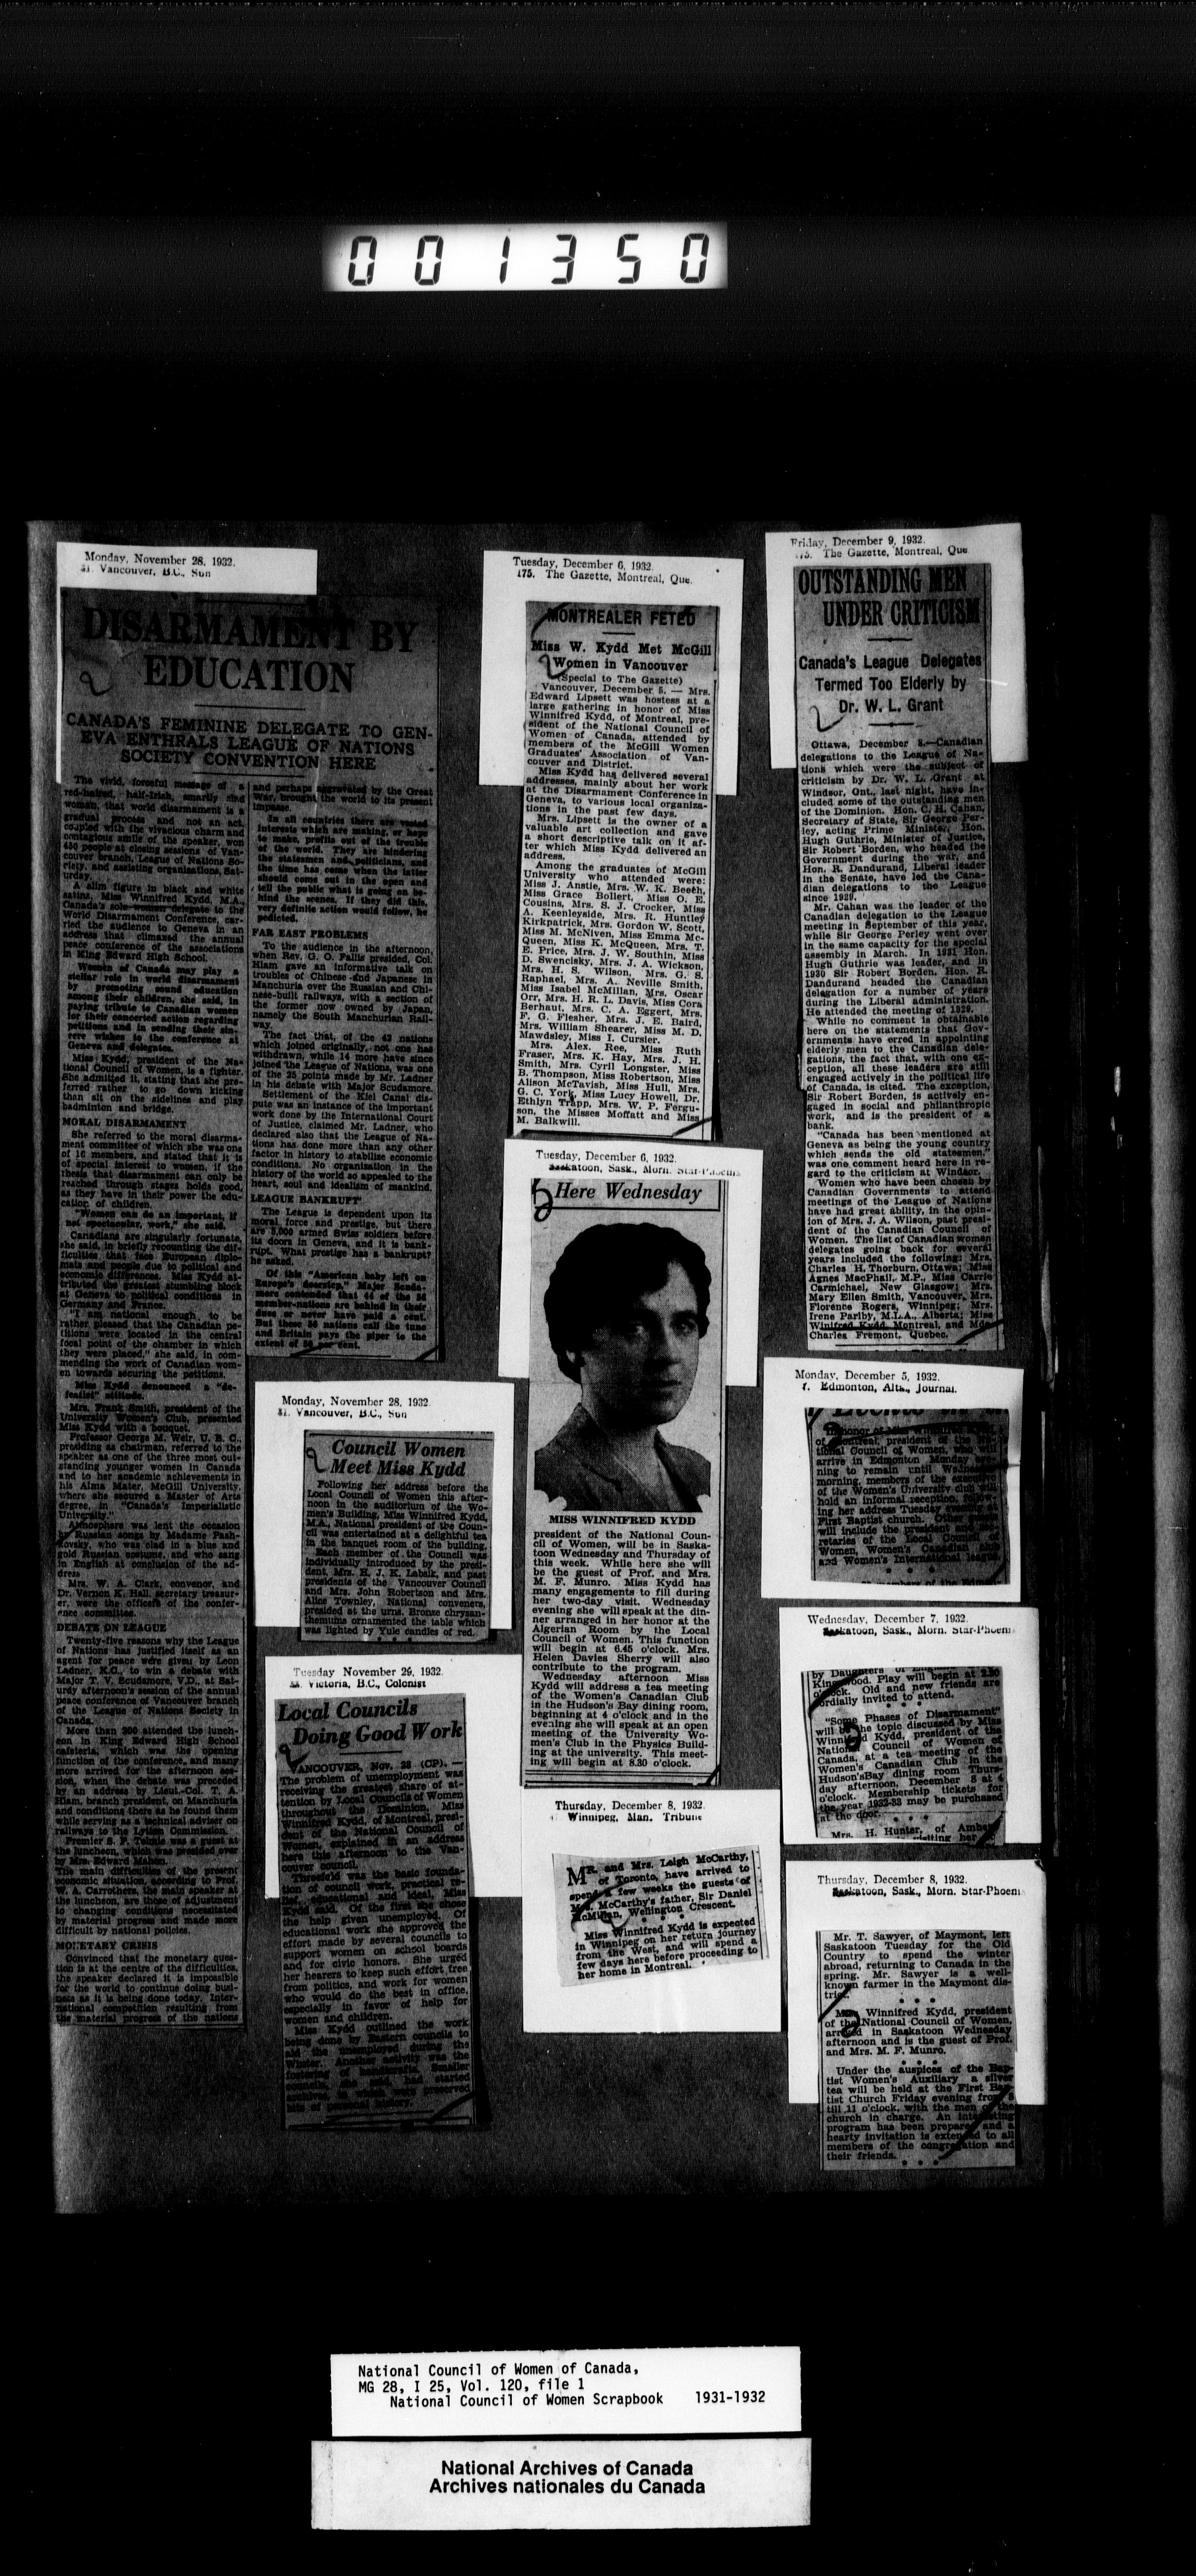 001350
Monday, November 28, 1932.
Vancouver, B.C., Sun
DISARMAMENT BY
EDUCATION
CANADA'S FEMININE DELEGATE TO GEN-
EVA ENTHRALS LEAGUE OF NATIONS
SOCIETY CONVENTION HERE
The vivid, forceful message of
red-haired, half-Irish, smartly clad
woman, that world disarmament is a
gradual process and not an act,
coupled with the vivacious charm and
contagious smile of the speaker, won
450 people at closing sessions of Van-
couver branch, League of Nations So-
ciety, and assisting organizations, Sat-
urday.
A slim figure in black and white
satins, Miss Winnifred Kydd, M.A.,
Canada's sole woman delegate to the
World Disarmament Conference, car-
ried the audience to Geneva in an
address that climaxed the annual
peace conference of the associations
in King Edward High School.
Women of Canada may play a
stellar role in world disarmament
by promoting sound education
among their children, she said, in
paying tribute to Canadian women
for their concerted action regarding
petitions and in sending their sin-
cere wishes to the conference at
Geneva and delegates.
Miss Kydd, president of the Na-
tional Council of Women, is a fighter.
She admitted it, stating that she pre-
ferred rather to go down kicking
than sit on the sidelines and play
badminton and bridge.
MORAL DISARMAMENT
She referred to the moral disarma-
ment committee of which she was one
of 16 members, and stated that it is
of special interest to women, if the
thesis that disarmament can only be
reached through stages holds good,
as they have in their power the edu-
cation of children.
"Women can do an important, if
not spectacular, work," she said.
Canadians are singularly fortunate,
she said, in briefly recounting the dif-
ficulties that face European diplo-
mats and people due to political and
economic differences. Miss Kydd at-
tributed the greatest stumbling block
at Geneva to political conditions in
Germany and France.
"I am national enough to be
rather pleased that the Canadian pe-
titions were located in the central
focal point of the chamber in which
they were placed," she said, in com-
mending the work of Canadian wom-
en towards securing the petitions.
Miss Kydd denounced a "de-
featist" attitude.
Mrs. Frank Smith, president of the
University Women's Club, presented
Miss Kydd with a bouquet.
Professor George M. Weir, U. B. C.,
presiding as chairman, referred to the
speaker as one of the three most out-
standing younger women in Canada
and to her academic achievements in
his Alma Mater, McGill University,
where she secured a Master of Arts
degree, in "Canada's Imperialistic
University."
Atmosphere was lent the occasion
by Russian songs by Madame Pash-
kovsky, who was clad in a blue and
gold Russian costume, and who sang
in English at conclusion of the ad-
dress
Mrs. W. A. Clark, convenor, and
Dr. Vernon K. Hall, secretary treasur-
er, were the officers of the confer-
ence committee.
DEBATE ON LEAGUE
Twenty-five reasons why the League
of Nations has justified itself as an
agent for peace were given by Leon
Ladner, K.C., to win a debate with
Major T. V. Scudamore, V.D., at Sat-
urday afternoon's session of the annual
peace conference of Vancouver branch
of the League of Nations Society in
Canada.
More than 200 attended the lunch-
eon in King Edward High School
cafeteria, which was the opening
function of the conference, and many
more arrived for the afternoon ses-
sion, when the debate was preceded
by an address by Lieut.-Col. T. A.
Hiam, branch president, on Manchuria
and conditions there as he found them
while serving as a technical adviser on
railways to the Lytton Commission.
Premier S. F. Tolmie was a guest at
the luncheon, which was presided over
by Mrs. Edward Mahon.
The main difficulties of the present
economic situation, according to Prof.
W. A. Carrothers, the main speaker at
the luncheon, are those of adjustment
to changing conditions necessitated
by material progress and made more
difficult by national policies.
MONETARY CRISIS
Convinced that the monetary ques-
tion is at the centre of the difficulties,
the speaker declared it is impossible
for the world to continue doing busi-
ness as it is being done today. Inter-
national competition resulting from
the material progress of the nations
and perhaps aggravated by the Great
War, brought the world to its present
impasse.
In all countries there are vested
interests which are making, or hope
to make, profits out of the trouble
of the world. They are hindering
the statesmen and politicians, and
the time has come when the latter
should come out in the open and
tell the public what is going on be-
hind the scenes. If they did this,
very definite action would follow, he
predicted.
FAR EAST PROBLEMS
To the audience in the afternoon,
when Rev. G. O. Fallis presided, Col.
Hiam gave an informative talk on
troubles of Chinese and Japanese in
Manchuria over the Russian and Chi-
nese-built railways, with a section of
the former now owned by Japan,
namely the South Manchurian Rail-
way.
The fact that, of the 42 nations
which joined originally, not one has
withdrawn, while 14 more have since
joined the League of Nations, was one
of the 25 points made by Mr. Ladner
in his debate with Major Scudamore.
Settlement of the Kiel Canal dis-
pute was an instance of the important
work done by the International Court
of Justice, claimed Mr. Ladner, who
declared also that the League of Na-
tions has done more than any other
factor in history to stabilize economic
conditions. No organization in the
history of the world so appealed to the
heart, soul and idealism of mankind.
LEAGUE BANKRUPT
The League is dependent upon its
moral force and prestige, but there
are 5,000 armed Swiss soldiers before
its doors in Geneva, and it is bank-
rupt. What prestige has a bankrupt?
he asked.
Of this "American baby left on
Europe's doorstep," Major Scuda-
more contended that 44 of the 58
member-nations are behind in their
dues or never have paid a cent.
But these 56 nations call the tune
and Britain pays the piper to the
extent of per cent.
Monday, November 28, 1932.
Vancouver, B.C., Sun
Council Women
Meet Miss Kydd
Following her address before the
Local Council of Women this after-
noon in the auditorium of the Wo-
men's Building, Miss Winnifred Kydd,
M.A., National president of the Coun-
cil was entertained at a delightful tea
in the banquet room of the building.
Each member of the Council was
individually introduced by the presi-
dent, Mrs. H. J. K. Labsik, and past
presidents of the Vancouver Council
and Mrs. John Robertson and Mrs.
Alice Townley, National conveners,
presided at the urns. Bronze chrysan-
themums ornamented the table which
was lighted by Yule candles of red.
Tuesday November 29, 1932.
Victoria, B.C., Colonist
Local Councils
Doing Good Work
VANCOUVER, Nov. 28 (CP).—
The problem of unemployment was
receiving the greatest share of at-
tention by Local Councils of Women
throughout the Dominion, Miss
Winnifred Kydd, of Montreal, presi-
dent of the National Council of
Women, explained in an address
here this afternoon to the Van-
couver council.
Threefold was the basic founda-
tion of council work, practical re-
lief, educational and ideal, Miss
Kydd said. Of the first she chose
the help given unemployed. Of
educational work she approved the
effort made by several councils to
support women on school boards
and for civic honors. She urged
her hearers to keep such effort free
from politics, and work for women
who would do the best in office,
especially in favor of help for
women and children.
Miss Kydd outlined the work
being done by Eastern councils to
aid the unemployed during the
Winter. Another activity was the
fostering of handicrafts. Smaller
councils, she said, had started
archives in which were preserved
bits of personal history.
Tuesday, December 6, 1932.
175. The Gazette, Montreal, Que.
MONTREALER FETED
Miss W. Kydd Met McGill
Women in Vancouver
(Special to The Gazette)
Vancouver, December 5. — Mrs.
Edward Lipsett was hostess at a
large gathering in honor of Miss
Winnifred Kydd, of Montreal, pre-
sident of the National Council of
Women of Canada, attended by
members of the McGill Women
Graduates' Association of Van-
couver and District.
Miss Kydd has delivered several
addresses, mainly about her work
at the Disarmament Conference in
Geneva, to various local organiza-
tions in the past few days.
Mrs. Lipsett is the owner of a
valuable art collection and gave
a short descriptive talk on it af-
ter which Miss Kydd delivered an
address.
Among the graduates of McGill
University who attended were:
Miss J. Anstie, Mrs. W. K. Beeth,
Miss Grace Bollert, Miss O. E.
Cousins, Mrs. S. J. Crocker, Miss
A. Keenleyside, Mrs. R. Huntley
Kirkpatrick, Mrs. Gordon W. Scott,
Miss M. McNiven, Miss Emma Mc-
Queen, Miss K. McQueen, Mrs. T.
E. Price, Mrs. J. W. Southin, Miss
D. Swencisky, Mrs. J. A. Wickson,
Mrs. H. S. Wilson, Mrs. G. S.
Raphael, Mrs. A. Neville Smith,
Miss Isabel McMillan, Mrs. Oscar
Orr, Mrs. H. R. L. Davis, Miss Cora
Berhaut, Mrs. C. A. Eggert, Mrs.
F. G. Flesher, Mrs. J. E. Baird,
Mrs. William Shearer, Miss M. D.
Mawdsley, Miss I. Cursler.
Mrs. Alex. Ree, Miss Ruth
Fraser, Mrs. K. Hay, Mrs. J. H.
Smith, Mrs. Cyril Longster, Miss
B. Thompson, Miss Robertson, Miss
Alison McTavish, Miss Hull, Mrs.
G. C. York, Miss Lucy Howell, Dr.
Ethlyn Trapp, Mrs. W. P. Fergu-
son, the Misses Moffatt and Miss
M. Balkwill.
Tuesday, December 6, 1932.
Saskatoon, Sask., Morn. Star-Phoenix
Here Wednesday
MISS WINNIFRED KYDD
president of the National Coun-
cil of Women, will be in Saska-
toon Wednesday and Thursday of
this week. While here she will
be the guest of Prof. and Mrs.
M. F. Munro. Miss Kydd has
many engagements to fill during
her two-day visit. Wednesday
evening she will speak at the din-
ner arranged in her honor at the
Algerian Room by the Local
Council of Women. This function
will begin at 6.45 o'clock. Mrs.
Helen Davies Sherry will also
contribute to the program.
Wednesday afternoon Miss
Kydd will address a tea meeting
of the Women's Canadian Club
in the Hudson's Bay dining room,
beginning at 4 o'clock and in the
evening she will speak at an open
meeting of the University Wo-
men's Club in the Physics Build-
ing at the university. This meet-
ing will begin at 8.30 o'clock.
Thursday, December 8, 1932.
Winnipeg, Man. Tribune
MR. and Mrs. Leigh McCarthy,
of Toronto, have arrived to
spend a few weeks the guests of
Mrs. McCarthy's father, Sir Daniel
McMillan, Wellington Crescent.
Miss Winnifred Kydd is expected
in Winnipeg on her return journey
from the West, and will spend a
few days here before proceeding to
her home in Montreal.
Friday, December 9, 1932.
175. The Gazette, Montreal, Que
OUTSTANDING MEN
UNDER CRITICISM
Canada's League Delegates
Termed Too Elderly by
Dr. W. L. Grant
Ottawa, December 8.—Canadian
delegations to the League of Na-
tions which were the subject of
criticism by Dr. W. L. Grant at
Windsor, Ont., last night, have in-
cluded some of the outstanding men
of the Dominion. Hon. C. H. Cahan,
Secretary of State, Sir George Per-
ley, acting Prime Minister, Hon.
Hugh Guthrie, Minister of Justice,
Sir Robert Borden, who headed the
Government during the war, and
Hon. R. Dandurand, Liberal leader
in the Senate, have led the Cana-
dian delegations to the League
since 1929.
Mr. Cahan was the leader of the
Canadian delegation to the League
meeting in September of this year,
while Sir George Perley went over
in the same capacity for the special
assembly in March. In 1931 Hon.
Hugh Guthrie was leader, and in
1930 Sir Robert Borden. Hon. R.
Dandurand headed the Canadian
delegation for a number of years
during the Liberal administration.
He attended the meeting of 1929.
While no comment is obtainable
here on the statements that Gov-
ernments have erred in appointing
elderly men to the Canadian dele-
gations, the fact that, with one ex-
ception, all these leaders are still
engaged actively in the political life
of Canada, is cited. The exception,
Sir Robert Borden, is actively en-
gaged in social and philanthropic
work, and is the president of a
bank.
"Canada has been mentioned at
Geneva as being the young country
which sends the old statesmen,"
was one comment heard here in re-
gard to the criticism at Windsor.
Women who have been chosen by
Canadian Governments to attend
meetings of the League of Nations
have had great ability, in the opin-
ion of Mrs. J. A. Wilson, past presi-
dent of the Canadian Council of
Women. The list of Canadian women
delegates going back for several
years included the following: Mrs.
Charles H. Thorburn, Ottawa; Miss
Agnes MacPhail, M.P., Miss Carrie
Carmichael, New Glasgow; Mrs.
Mary Ellen Smith, Vancouver, Mrs.
Florence Rogers, Winnipeg; Mrs.
Irene Parlby, M.L.A., Alberta; Miss
Winifred Kydd, Montreal, and Mde.
Charles Fremont, Quebec.
Monday, December 5, 1932.
Edmonton, Alta., Journal.
In honor of Miss Winnifred Kydd
of Montreal, president of the Na-
tional Council of Women, who will
arrive in Edmonton Monday eve-
ning to remain until Wednesday
morning, members of the executive
of the Women's University club will
hold an informal reception, follow-
ing her address Tuesday evening at
First Baptist church. Other guests
will include the president and sec-
retaries of the Local Council of
Women, Women's Canadian club
and Women's International league.
Wednesday, December 7, 1932.
Saskatoon, Sask., Morn. Star-Phoenix
by Daughters of
Kingwood. Play will begin at 2.30
o'clock. Old and new friends are
cordially invited to attend.
"Some Phases of Disarmament"
will be the topic discussed by Miss
Winnifred Kydd, president of the
National Council of Women of
Canada, at a tea meeting of the
Women's Canadian Club in the
Hudson's Bay dining room Thurs-
day afternoon, December 8 at 4
o'clock. Membership tickets for
the year 1932-33 may be purchased
at the door.
Mrs. H. Hunter, of Amber
visiting her
Thursday, December 8, 1932.
Saskatoon, Sask., Morn. Star-Phoenix
Mr. T. Sawyer, of Maymont, left
Saskatoon Tuesday for the Old
Country to spend the winter
abroad, returning to Canada in the
spring. Mr. Sawyer is a well-
known farmer in the Maymont dis-
trict.
Miss Winnifred Kydd, president
of the National Council of Women,
arrived in Saskatoon Wednesday
afternoon and is the guest of Prof.
and Mrs. M. F. Munro.
Under the auspices of the Bap-
tist Women's Auxiliary a silver
tea will be held at the First Bap-
tist Church Friday evening from 8
till 11 o'clock, with the men of the
church in charge. An interesting
program has been prepared and a
hearty invitation is extended to all
members of the congregation and
their friends.
National Council of Women of Canada,
MG 28, I 25, Vol. 120, file 1
National Council of Women Scrapbook 1931-1932
National Archives of Canada
Archives nationales du Canada